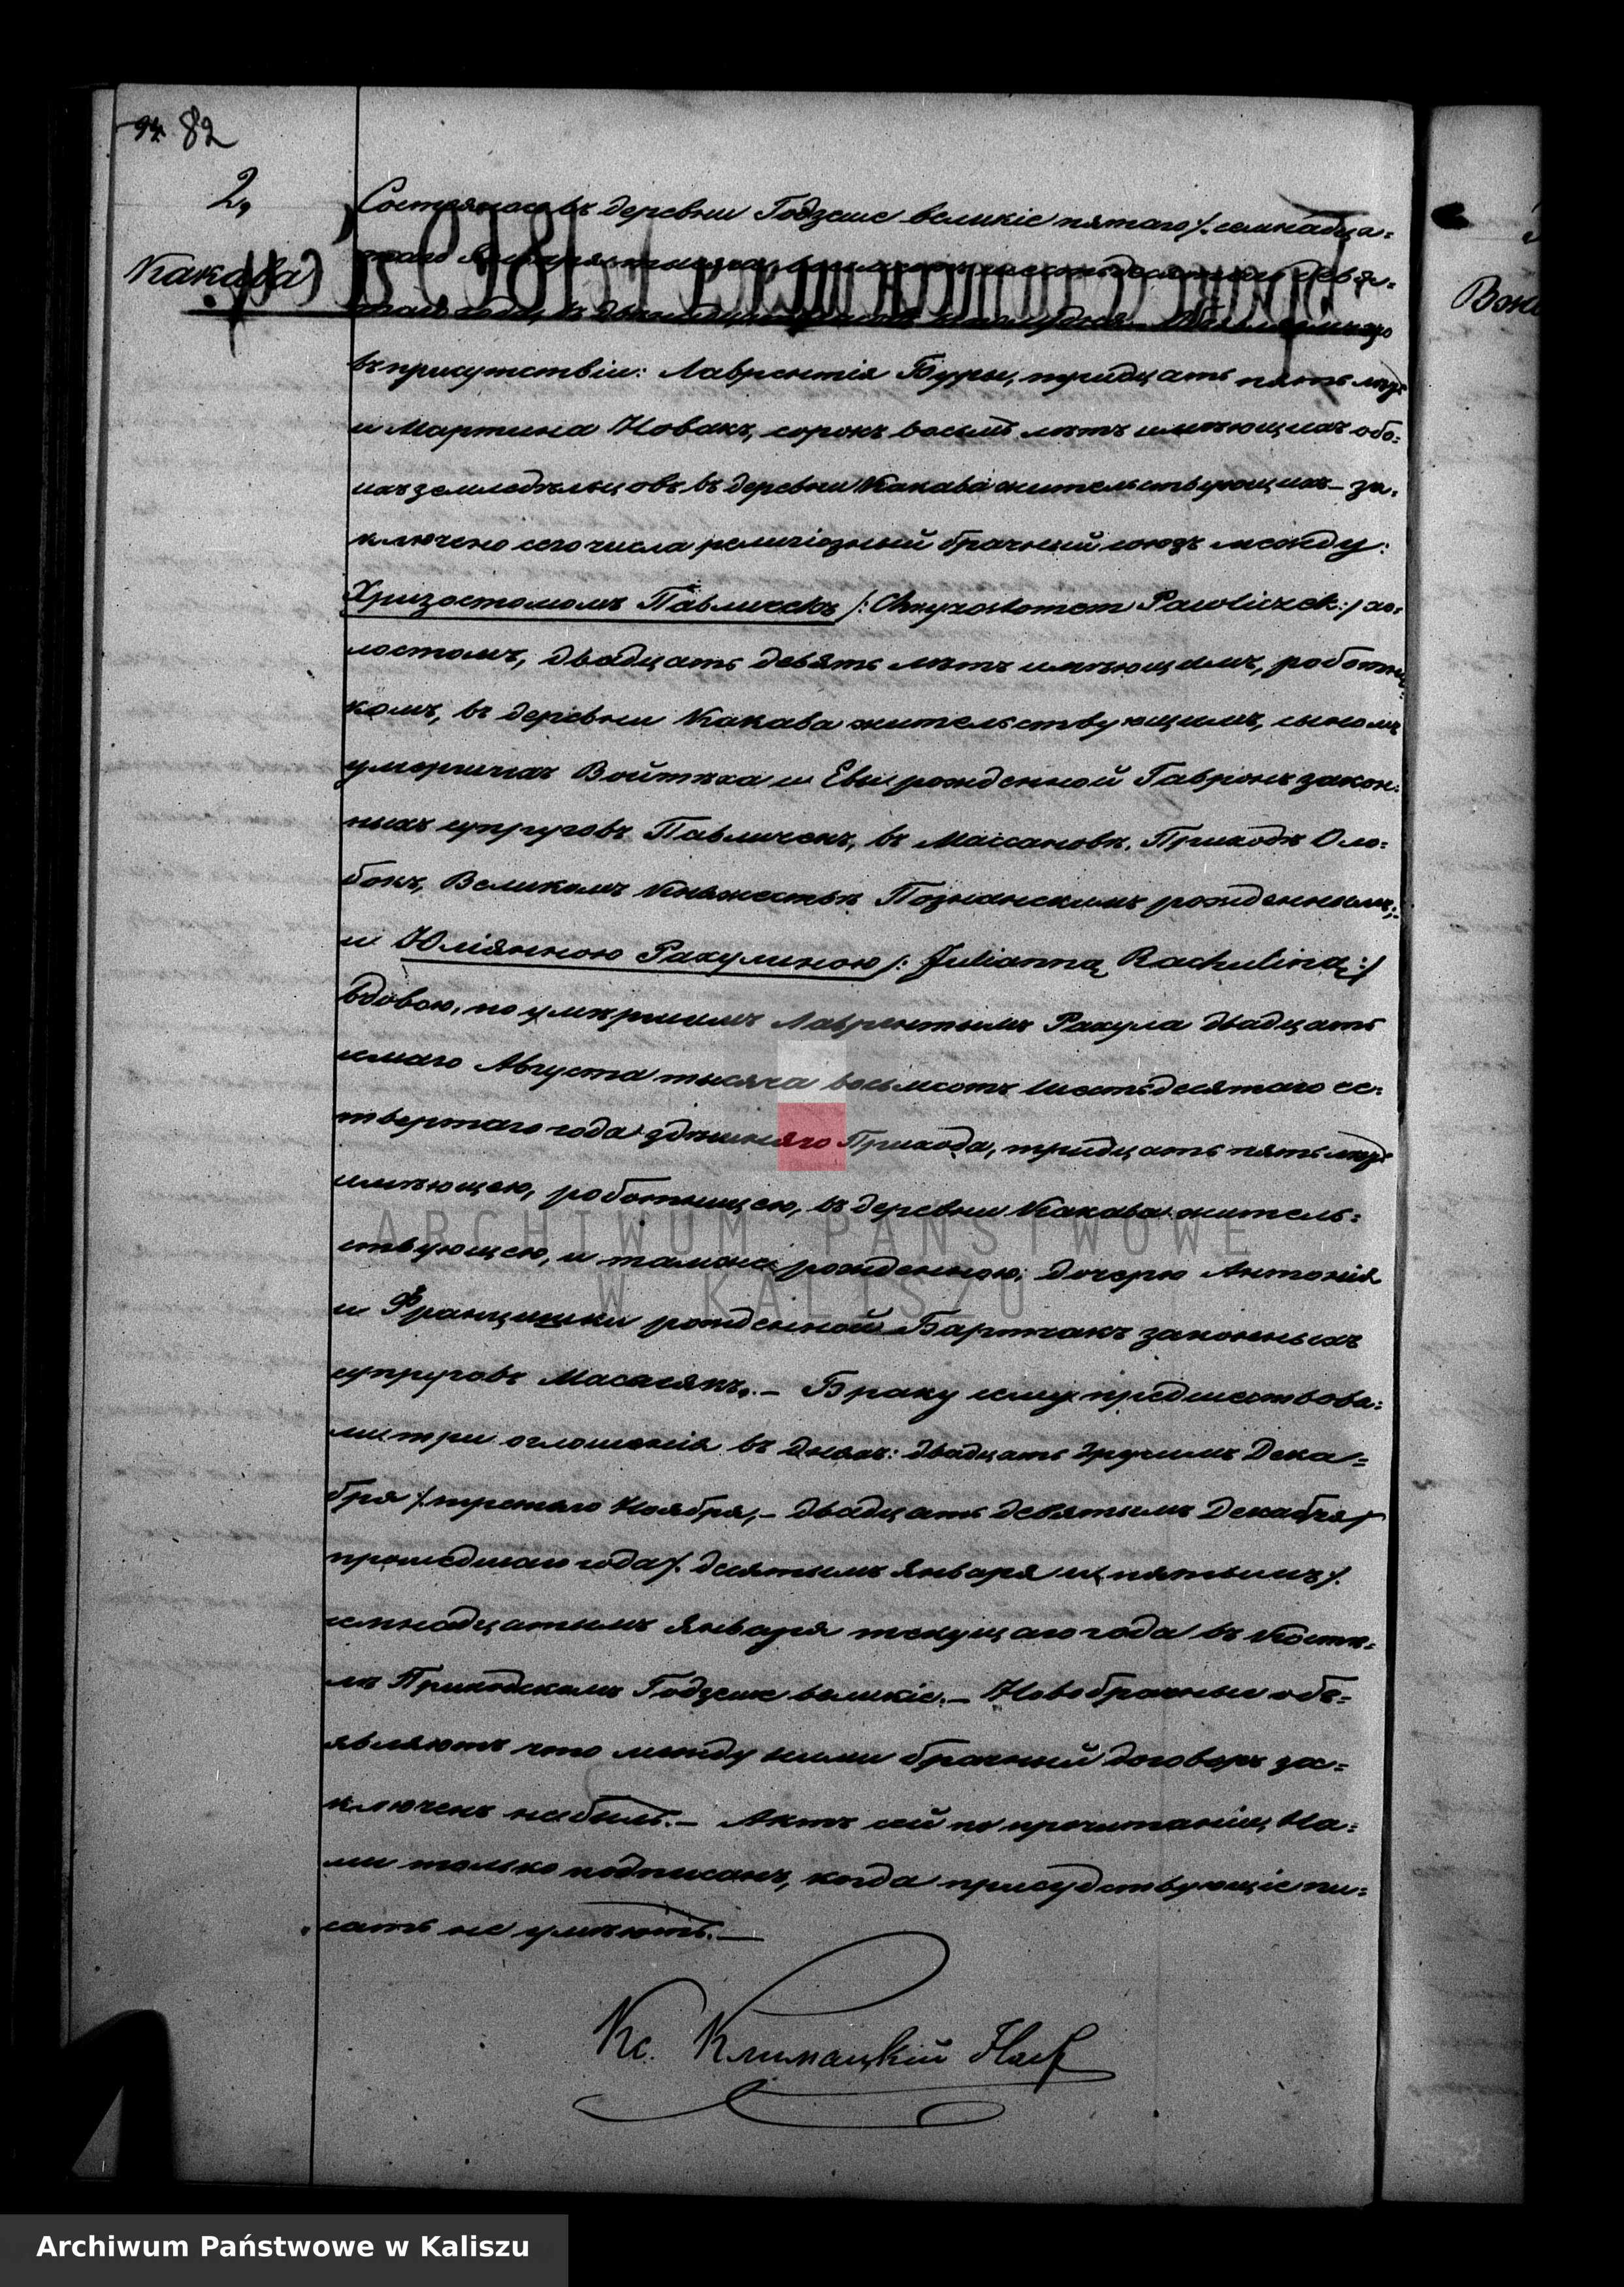 82
2,
Какава
Состоялось въ деревни Годзеше великіе пятаго /. семнадца=
таго Января тысяча восемьсотъ шестьдесятъ девя=
таго года, въ
въ присутствіи: Лаврентія Буры, тридцать пять лѣтъ
и Мартина Новакъ, сорокъ восьмь лѣтъ имѣющихъ обо=
ихъ земледѣльцовъ въ деревни Какава жительствующихъ – за=
ключено сего числа религіозный брачный союзъ между:
Хризостомомъ Павличекъ /: Chryzostomem Pawliczek :/ хо=
лостомъ, двадцать девять лѣтъ имѣющимъ, работни=
комъ, въ деревни Какава жительствующимъ, сыномъ
умершихъ Войтѣха и Евы рожденной Гавронъ закон=
ныхъ супруговъ Павличекъ, въ Массановѣ, Приходѣ Оло=
бокъ, Великомъ Княжествѣ Познанскимъ рожденнымъ;
и Юліянною Рахулиною /: Julianną Rachuliną :/
вдовою, по умѣршимъ Лаврентымъ Рахула двадцать
семаго Августа тысяча восьмсотъ шестьдесятаго че=
твертаго года здѣшняго Прихода, тридцать пять лѣтъ
имѣющею, работницею, въ деревни Какава житель=
ствующею, и тамже рожденною; дочерю Антонія
и Францишки рожденной Бартчакъ законныхъ
супруговъ Масасякъ. – Браку сему предшествова=
ли три оглошенія въ дняхъ: двадцать другимъ Дека=
бря / третьяго Января, – двадцать девятымъ Декабря /
прошедшаго года /. десятымъ Января и, пятымъ /.
семнадцатымъ Января текущаго года въ Костѣ=
лѣ Приходскомъ Годзеше великіе. – Новобрачные объ=
являютъ что между ними брачный договоръ за=
ключенъ небылъ. – Актъ сей по прочитаніи, На=
ми только подписанъ, когда присудствующіе пи=
сать не умѣютъ. –
Кс. Климацкій Наст
Вой
ARCHIWUM PAŃSTWOWE
W KALISZU
Archiwum Państwowe w Kaliszu